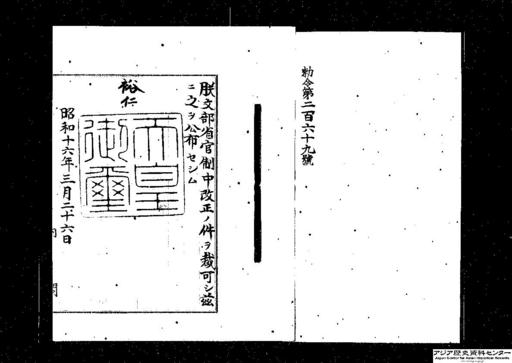 勅令第二百六十九號
朕文部省官制中改正ノ件ヲ裁可シ茲
ニ之ヲ公布セシム
裕仁
天皇
御璽
昭和十六年三月二十六日
内閣
アジア歴史資料センター
Japan Center for Asian Historical Records